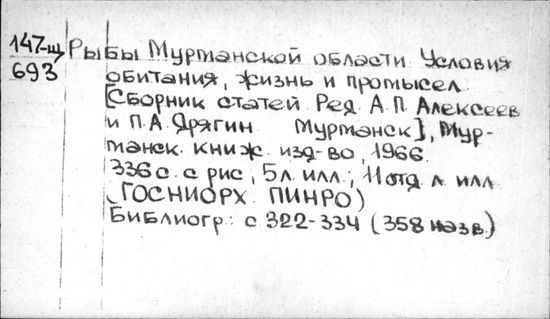 147-щ
693
Рыбы Мурманской области. Условия
обитания, жизнь и промысел.
[Сборник статей. Ред. А.П. Алексеев
и П.А. Дрягин. Мурманск], Мур-
манск. книж. изд-во, 1966.
336 с. с рис., 5 л. илл., 11 отд. л. илл.
(ГОСНИОРХ. ПИНРО)
Библиогр.: с 322-334 (358 назв.)